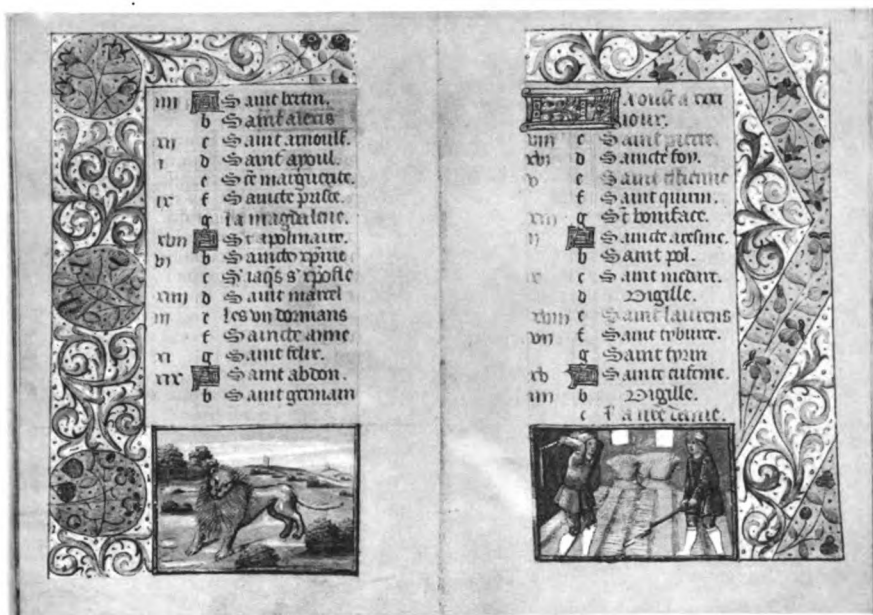 iiii A Saint bertin.
b Saint alexis
xii c Saint arnoulf.
i d Saint apoul.
e Ste marguerite.
ix f Saincte
g la magdalene.
xvii A St apolinaire.
vi b Saincte xpine
c St iaqs s xpofle
xiiii d Saint marcel
iii e les vii dormans
f Saincte anne
xi g Saint felix.
xix A Saint abdon.
b Saint germain
Aoust a xxxi
iour.
viii c Saint pierre.
xvi d Saincte foy.
v e Saint estienne
f Saint quirin.
xiii g St boniface.
ii A Saincte
b Saint pol.
x c Saint medart.
d Vigille.
xviii e Saint laurens
vii f Saint tyburce.
g Saint
xv A Saincte eusebie.
iiii b Vigille.
c